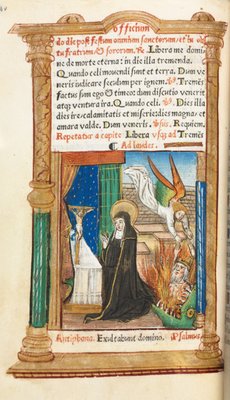 Officium
do die post festum omnium sanctorum: et in obi
tu fratrum et sororum. ℟ Libera me domi
ne de morte eterna: in die illa tremenda.
Quando celi mouendi sunt et terra. Dum ve
neris iudicare seculum per ignem. ℣s. Tremēs
factus sum ego et timeo: dum discutio venerit
atq; ventura ira. Quando celi. ℣s Dies illa
dies ire: calamitatis et miserie: dies magna: et
amara valde. Dum veneris. ℣sic. Requiem.
Repetatur a capite Libera vsq; ad Tremēs
Ad laudes.
Antiphona. Exultabunt domino. Psalmus.